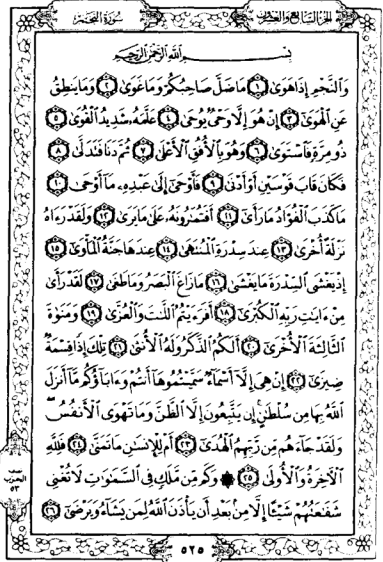 الجزء السابع والعشرون
سورة النجم
بِسْمِ اللَّهِ الرَّحْمَٰنِ الرَّحِيمِ
وَالنَّجْمِ إِذَا هَوَىٰ ١ مَا ضَلَّ صَاحِبُكُمْ وَمَا غَوَىٰ ٢ وَمَا يَنطِقُ
عَنِ الْهَوَىٰ ٣ إِنْ هُوَ إِلَّا وَحْيٌ يُوحَىٰ ٤ عَلَّمَهُ شَدِيدُ الْقُوَىٰ ٥
ذُو مِرَّةٍ فَاسْتَوَىٰ ٦ وَهُوَ بِالْأُفُقِ الْأَعْلَىٰ ٧ ثُمَّ دَنَا فَتَدَلَّىٰ ٨
فَكَانَ قَابَ قَوْسَيْنِ أَوْ أَدْنَىٰ ٩ فَأَوْحَىٰ إِلَىٰ عَبْدِهِ مَا أَوْحَىٰ ١٠
مَا كَذَبَ الْفُؤَادُ مَا رَأَىٰ ١١ أَفَتُمَارُونَهُ عَلَىٰ مَا يَرَىٰ ١٢ وَلَقَدْ رَءَاهُ
نَزْلَةً أُخْرَىٰ ١٣ عِندَ سِدْرَةِ الْمُنتَهَىٰ ١٤ عِندَهَا جَنَّةُ الْمَأْوَىٰ ١٥
إِذْ يَغْشَى السِّدْرَةَ مَا يَغْشَىٰ ١٦ مَا زَاغَ الْبَصَرُ وَمَا طَغَىٰ ١٧ لَقَدْ رَأَىٰ
مِنْ ءَايَٰتِ رَبِّهِ الْكُبْرَىٰ ١٨ أَفَرَءَيْتُمُ اللَّٰتَ وَالْعُزَّىٰ ١٩ وَمَنَوٰةَ
الثَّالِثَةَ الْأُخْرَىٰ ٢٠ أَلَكُمُ الذَّكَرُ وَلَهُ الْأُنثَىٰ ٢١ تِلْكَ إِذًا قِسْمَةٌ
ضِيزَىٰ ٢٢ إِنْ هِيَ إِلَّا أَسْمَاءٌ سَمَّيْتُمُوهَا أَنتُمْ وَءَابَاؤُكُم مَّا أَنزَلَ
اللَّهُ بِهَا مِن سُلْطَٰنٍ إِن يَتَّبِعُونَ إِلَّا الظَّنَّ وَمَا تَهْوَى الْأَنفُسُ
وَلَقَدْ جَاءَهُم مِّن رَّبِّهِمُ الْهُدَىٰ ٢٣ أَمْ لِلْإِنسَٰنِ مَا تَمَنَّىٰ ٢٤ فَلِلَّهِ
الْآخِرَةُ وَالْأُولَىٰ ٢٥ ۞ وَكَم مِّن مَّلَكٍ فِي السَّمَٰوَٰتِ لَا تُغْنِي
شَفَٰعَتُهُمْ شَيْئًا إِلَّا مِن بَعْدِ أَن يَأْذَنَ اللَّهُ لِمَن يَشَاءُ وَيَرْضَىٰ ٢٦
نصف
الحزب
٥٣
٥٢٥